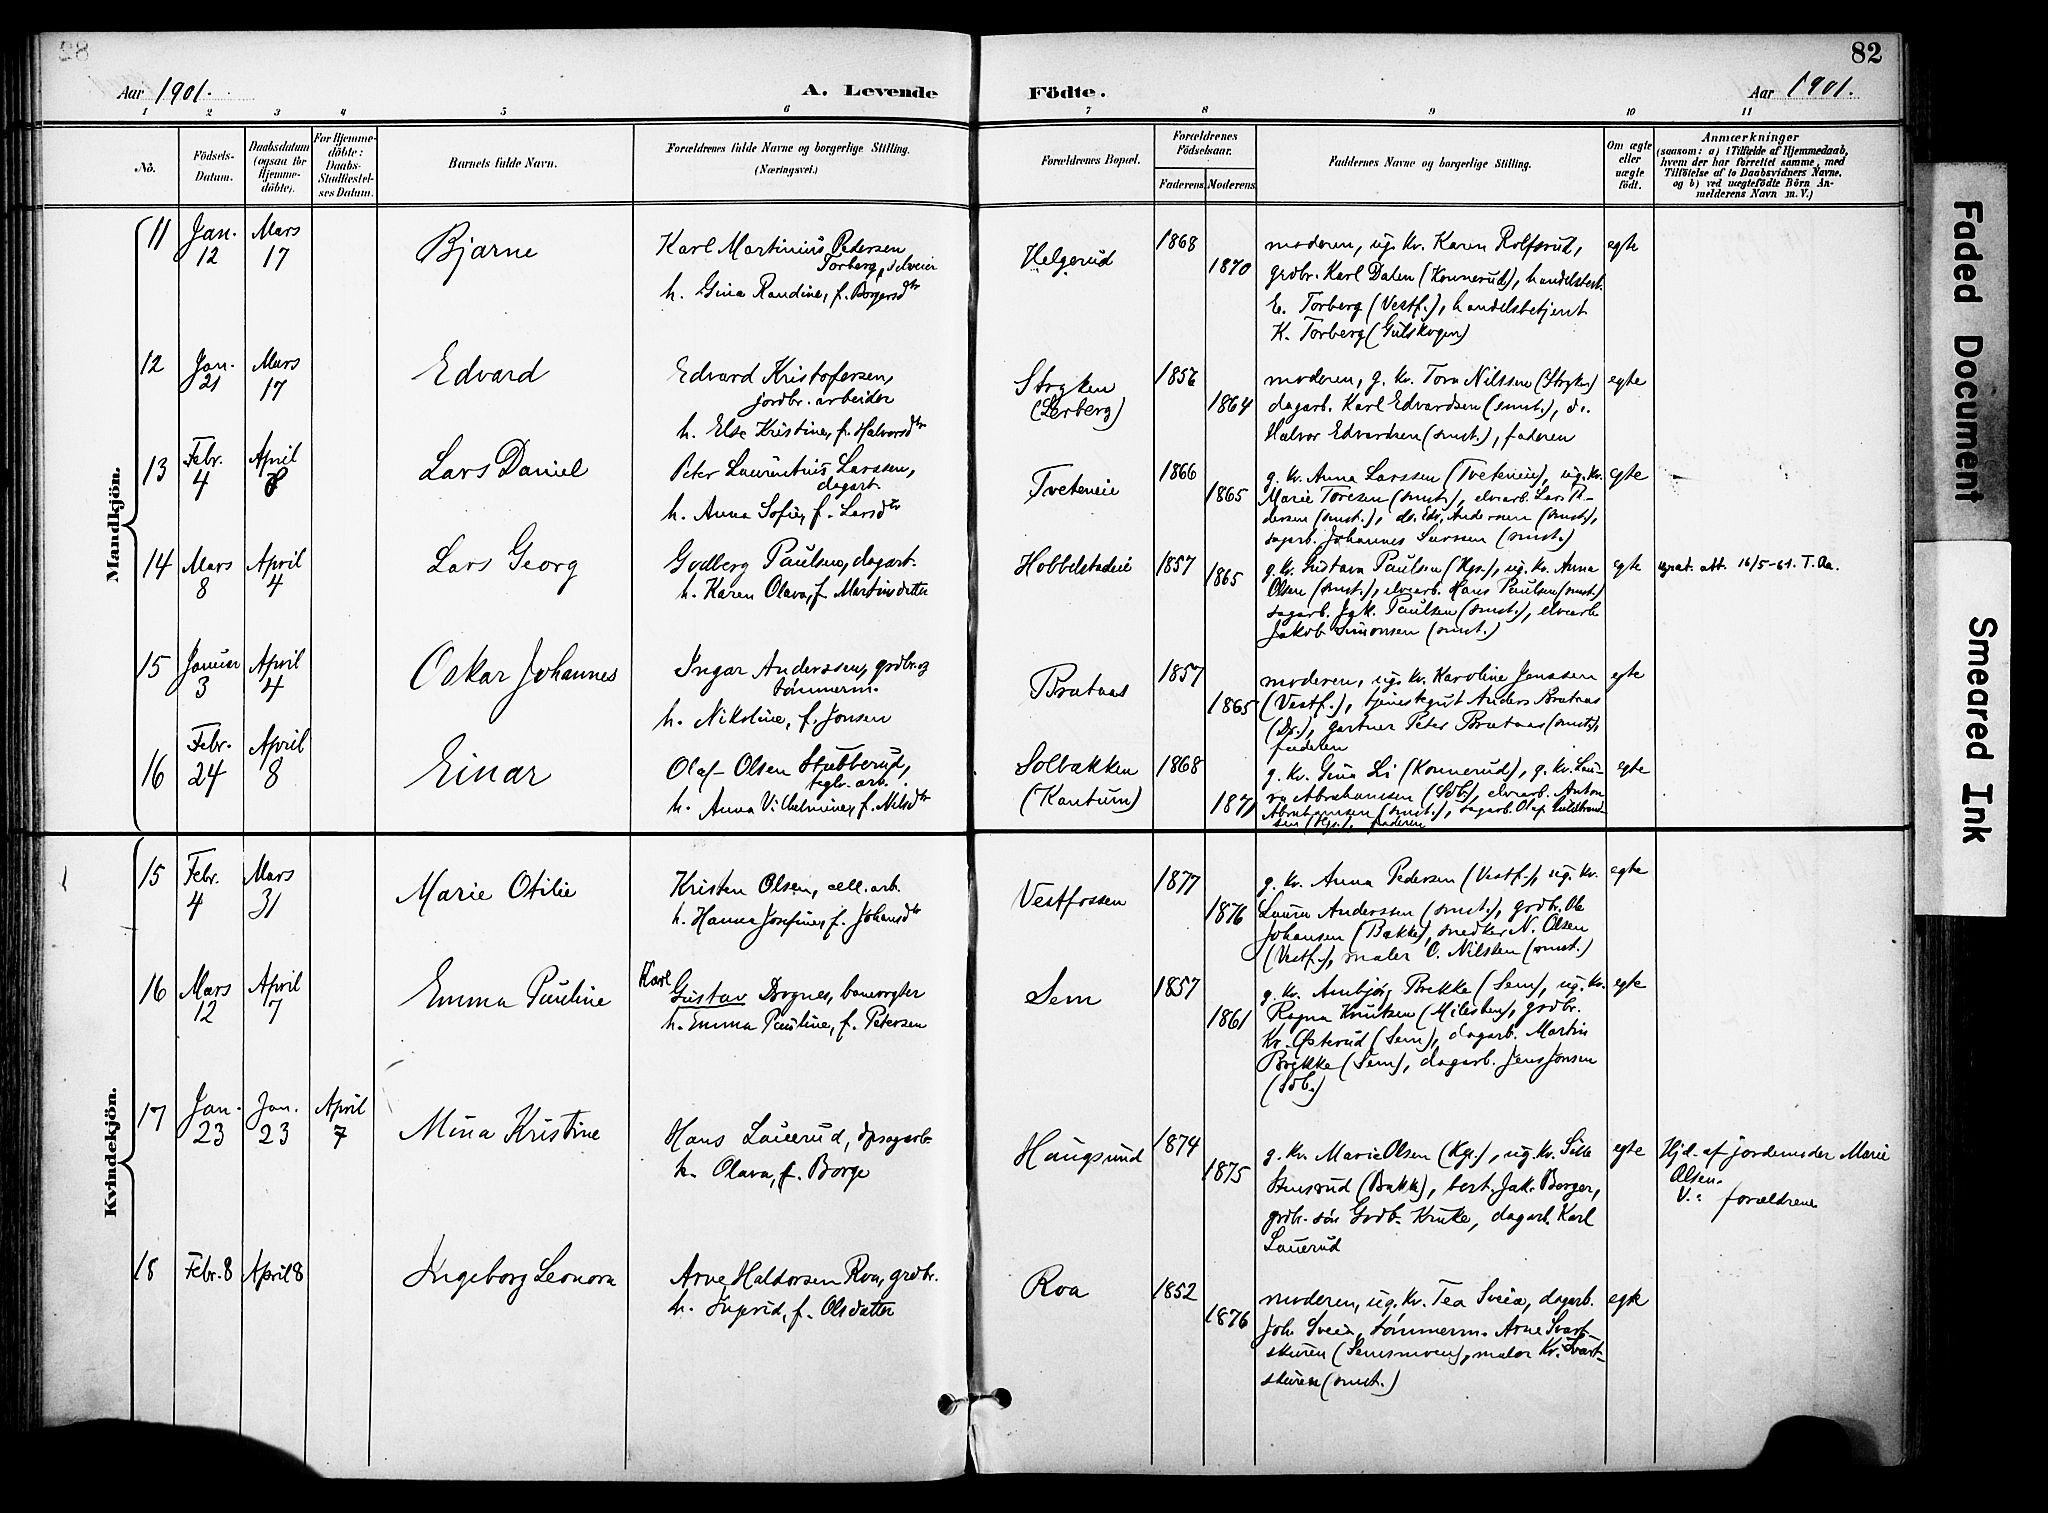 82
Aar 1901.
A. Levende Födte.
Aar 1901.
1 2 3 4 5 6 7 8 9 10 11
No.
Födsels-Datum.
Daabsdatum (ogsaa for Hjemme-döbte).
For Hjemme-döbte: Daabs-Stadfæstel-ses Datum.
Barnets fulde Navn.
Forældrenes fulde Navne og borgerlige Stilling.
(Næringsvei.)
Forældrenes Bopæl.
Forældrenes Födselsaar.
Faderens. Moderens.
Faddernes Navne og borgerlige Stilling.
Om ægte eller uægte födt.
Anmærkninger
(saasom: a) i Tilfælde af Hjemmedaab,
hvem der har forrettet samme, med
Tilföielse af to Daabsvidners Navne,
og b) ved uægtefödte Börn An-
melderens Navn m. V.)
Mandkjön.
11 Jan. 12 Mars 17
Bjarne
Karl Martinius Pedersen
Torberg,
h. Gina Randine, f. Borgersdtr
Helgerud
1868
1870
moderen, ug. kv. Karen Rolfsrud,
grdbr. Karl Dalen (Konnerud), handelsbest.
E. Torberg (Vestf.), handelsbetjent
K. Torberg (Gulskogen)
egte
12 Jan. 21 Mars 17
Edvard
Edvard Kristofersen,
jordbr. arbeider
h. Else Kristine, f. Halvorsdtr
Stryken
(Lerberg)
1856
1864
moderen, g. kv. Tora Nilssen (Stryk.)
dagarb. Karl Edvardsen (smst.), do.
Halvor Edvardsen (smst.), faderen
egte
13 Febr. 4 April 8
Lars Daniel
Peter Laurentius Larssen,
dagarb.
h. Anna Sofie, f. Larsdtr
Tveteneie
1866
1865
g. kv. Anna Larssen (Tveteneie), ug. kv.
Marie Toresen (smst.), elvearb. Lars Pe-
dersen (smst.), do. Edv. Andersen (smst.),
sagarb. Johannes Larssen (smst.)
egte
14 Mars 8 April 4
Lars Georg
Godberg Paulsen, dagarb.
h. Karen Olava, f. Martinsdatter
Hobbelstadeie
1857
1865
g. kv. Gustava Paulsen (Hgs.), ug. kv. Anna
Olsen (smst.), elvearb. Hans Paulsen (smst.)
sagarb. Jak. Paulsen (smst.), elvearb.
Jakob Simonsen (smst.)
egte
att. 16/5-61. T. Aa.
15 Januar 3 April 4
Oskar Johannes
Ingar Anderssen, grdbr. og
tömmerm.
h. Nikoline, f. Jonsen
Brataas
1857
1865
moderen, ug. kv. Karoline Janssen
(Vestf.), tjenestegut Anders Brataas
(Ds.), gartner Peter Brataas (smst.),
faderen
egte
16 Febr. 24 April 8
Einar
Olaf Olsen Stubberud,
teglv. arb.
h. Anna Vilhelmine, f. Nilsdtr
Solbakken
(Kantum)
1868
1871
g. kv. Gina Li (Konnerud), g. kv. Lau-
ra Abrahamsen (Sdb.), elvearb. Anton
Abrahamsen (smst.), sagarb. Olaf Guldbrand-
sen (Hgs.), faderen
egte
Kvindekjön.
15 Febr. 4 Mars 31
Marie Otilie
Kristen Olsen, cell. arb.
h. Hanna Josefine, f. Johansdtr
Vestfossen
1877
1876
g. kv. Anna Pedersen (Vestf.), ug. kv.
Laura Anderssen (smst.), grdbr. Ole
Johansen (Bakke), snedker N. Olsen
(Vestf.), maler O. Nilssen (smst.)
egte
16 Mars 12 April 7
Emma Pauline
Karl
Gustav Drognes, banevogter
h. Emma Pauline, f. Petersen
Sem
1857
1861
g. kv. Ambjörg Brekke (Sem), ug. kv.
Ragna Knutsen (Milesten), grdbr.
Kr. Østerud (Sem), dagarb. Martin
Brekke (Sem), dagarb. Jens Jonsen
(Sdb.)
egte
17 Jan. 23 Jan. 23 April 7
Mina Kristine
Hans Lauerud, dpsagarb.
h. Olava, f. Borge
Haugsund
1874
1875
g. kv. Marie Olsen (Hgs.), ug. kv. Sille
Stensrud (Bakk.), best. Jak. Borger,
grdbr. sön Gudb. Kruke, dagarb. Karl
Lauerud
egte
Hjd. af jordemoder Marie
Olsen.
V.: forældrene
18 Febr. 8 April 8
Ingeborg Leonora
Arne Haldorsen Roa, grdbr.
h. Ingrid, f. Olsdatter
Roa
1852
1876
moderen, ug. kv. Tea Sveia, dagarb.
Joh. Sveia, tömmerm. Arne Svart-
skuren (Semsmoen), maler Kr. Svart-
skuren (smst.)
egte
Faded Document
Smeared Ink